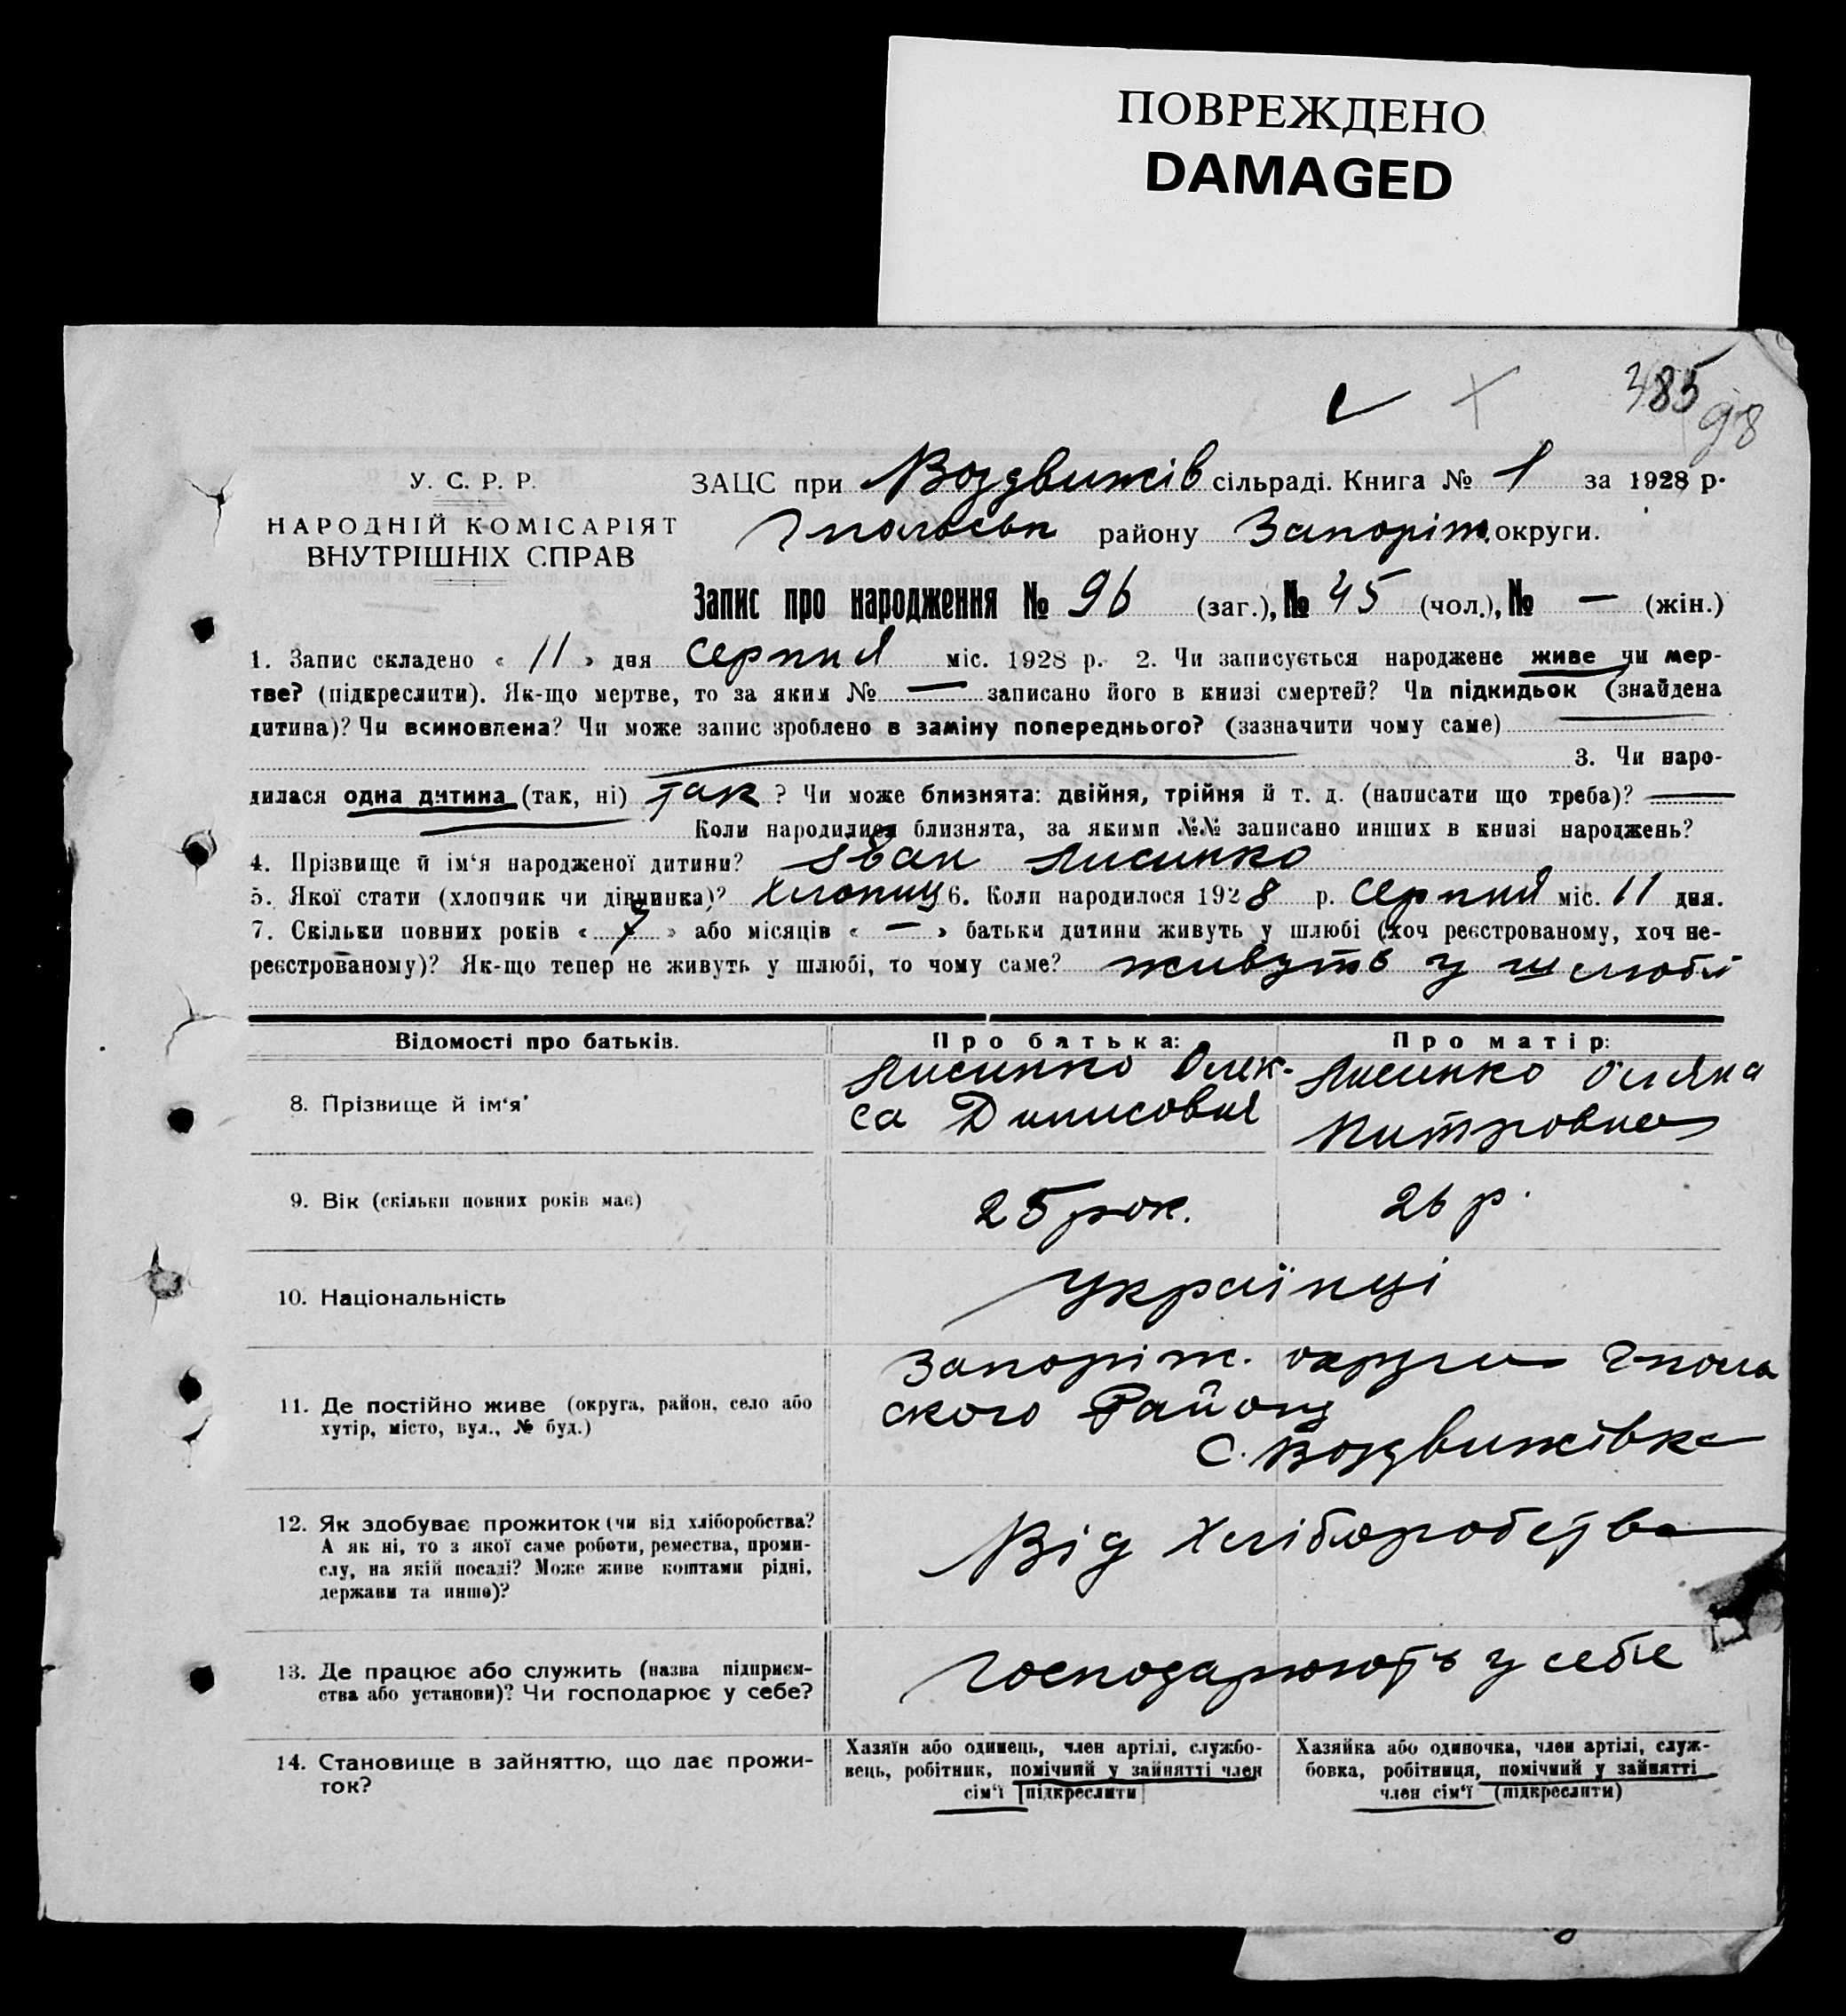 ПОВРЕЖДЕНО
DAMAGED
385
98
У. С. Р. Р.
НАРОДНІЙ КОМІСАРІЯТ
ВНУТРІШНІХ СПРАВ
ЗАЦС при Воздвижів сільраді. Книга № 1 за 1928 р.
району Запоріж. округи.
Запис про народження № 96 (заг.), № 45 (чол.), № — (жін.)
1. Запис складено « 11 » дня Серпня міс. 1928 р. 2. Чи записується народжене живе чи мер-
тве? (підкреслити). Як-що мертве, то за яким № — записано його в книзі смертей? Чи підкидьок (знайдена
дитина)? Чи всиновлена? Чи може запис зроблено в заміну попереднього? (зазначити чому саме)
3. Чи наро-
дилася одна дитина (так, ні) так ? Чи може близнята: двійня, трійня й т. д. (написати що треба)? —
Коли народилися близнята, за якими №№ записано инших в книзі народжень?
4. Прізвище й ім'я народженої дитини? Іван Лисинко
5. Якої стати (хлопчик чи дівчинка)? Хлопиц 6. Коли народилося 1928 р. Серпня міс. 11 дня.
7. Скільки повних років « 7 » або місяців « — » батьки дитини живуть у шлюбі (хоч реєстрованому, хоч не-
реєстрованому)? Як-що тепер не живуть у шлюбі, то чому саме? живуть у шлюбі
Відомості про батьків. Про батька: Про матір:
8. Прізвище й ім'я Лисинко Олек- Лисинко Уляна
са Динисович Питровна
9. Вік (скільки повних років має) 25 рок. 26 р.
10. Національність Українці
11. Де постійно живе (округа, район, село або
хутір, місто, вул., № буд.)
Запоріж. округи Гнола
ского Району
С. Воздвижівка
12. Як здобуває прожиток (чи від хліборобства?
А як ні, то з якої саме роботи, ремества, проми-
слу, на якій посаді? Може живе коштами рідні,
держави та инше)?
Від Хліборобства
13. Де працює або служить (назва підприєм-
ства або установи)? Чи господарює у себе?
Господарюють у себе
14. Становище в зайняттю, що дає прожи-
ток?
Хазяїн або одинець, член артілі, службо-
вець, робітник, помічний у зайнятті член
сім'ї (підкреслити)
Хазяйка або одиночка, член артілі, служ-
бовка, робітниця, помічний у зайнятті
член сім'ї (підкреслити)